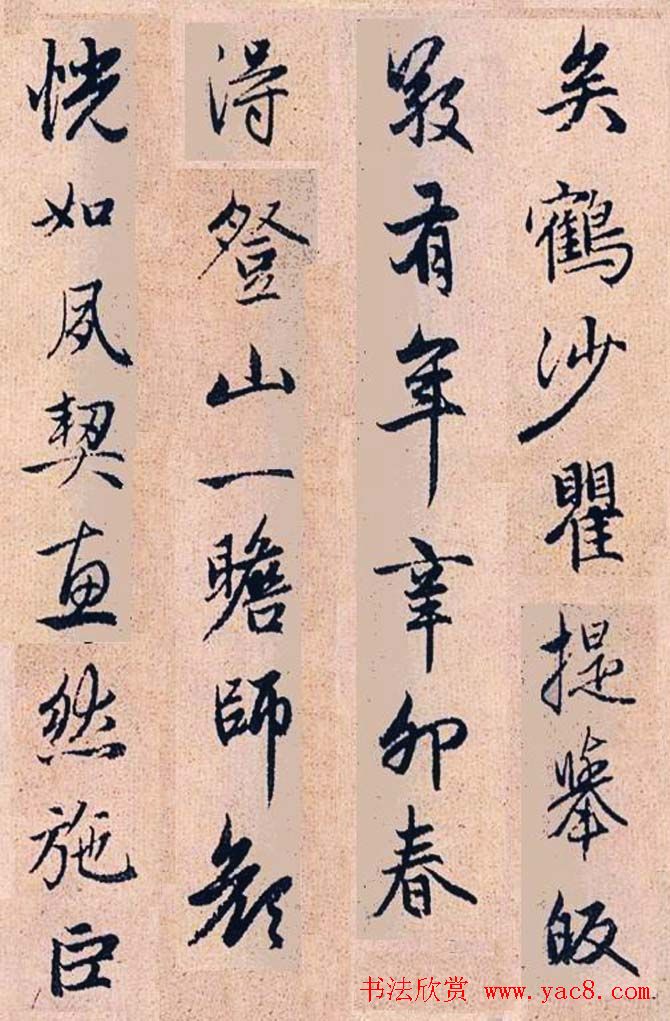 矣鶴沙瞿提舉皈
敬有年辛卯春
得登山一瞻師顏
恍如夙契惠然施巨
书法欣赏 www.yac8.com